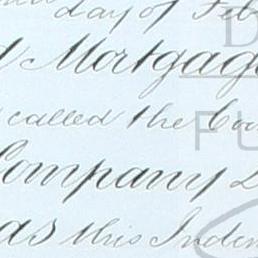 day of Feb
Mortgage
called the Co
Company
as this Inden